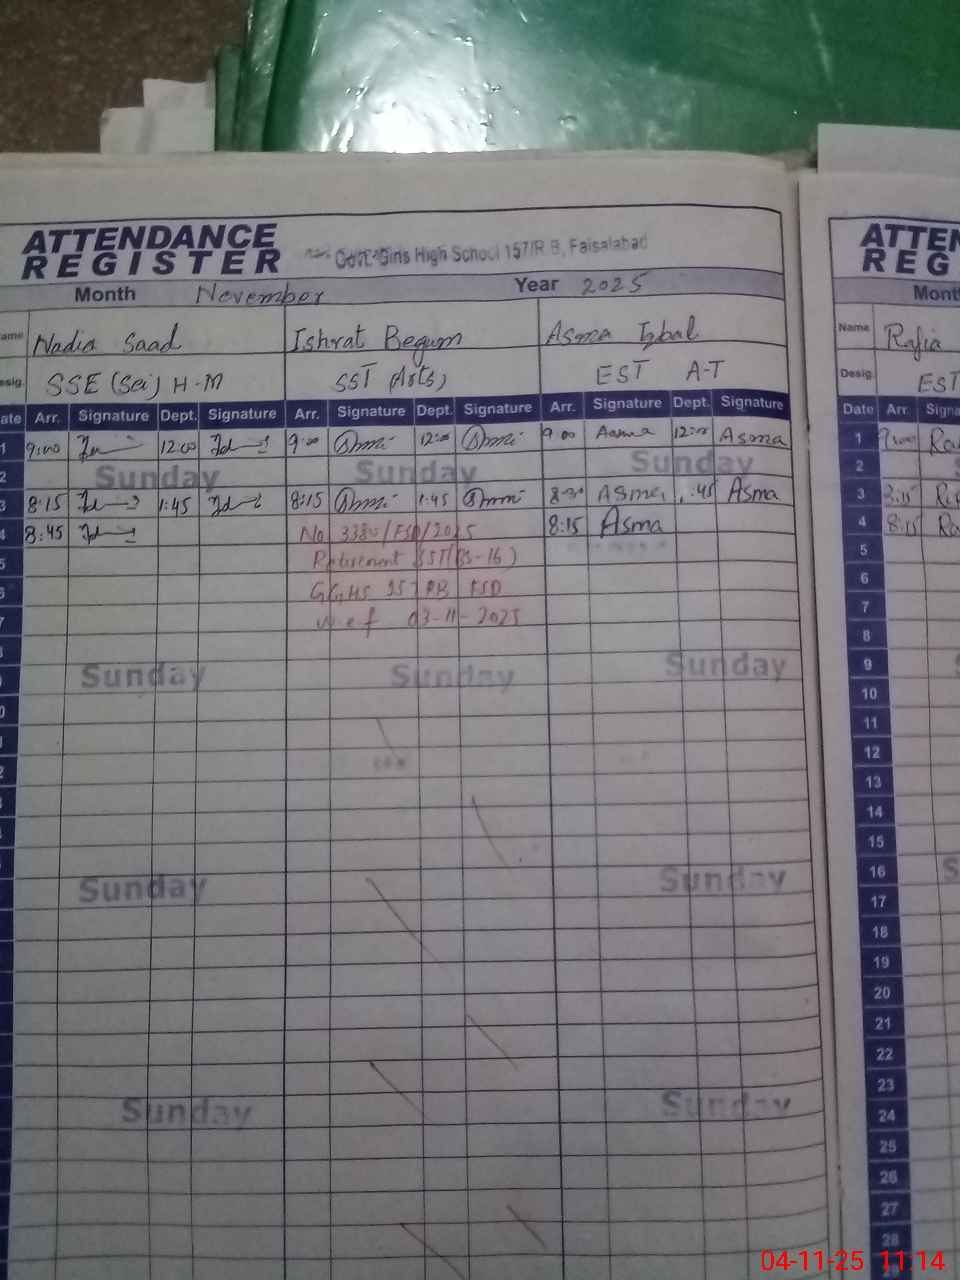 ATTENDANCE
REGISTER
Govt. Girls High School 157/R B, Faisalabad
Month November Year 2025
Name Nadia Saad Ishrat Begum Asma Iqbal
Desig. SSE (Sci) H-M SST (Arts) EST A-T
Date Arr. Signature Dept. Signature Arr. Signature Dept. Signature Arr. Signature Dept. Signature
1 9:00 12:00 9:00 12:00 9:00 Asma 12:00 Asma
2 Sunday Sunday Sunday
3 8:15 1:45 8:15 1:45 8:30 Asma 1:45 Asma
4 8:45 No 3380/FSD/2025 8:15 Asma
5 Retirement SST(BS-16)
6 GGHS 157 RB FSD
7 w.e.f 03-11-2025
Sunday Sunday Sunday
Sunday Sunday
Sunday Sunday
ATTEN
REG
Month
Name Rafia
Desig. EST
Date Arr. Signa
1 9:00 Ra
2
3 8:15
4 8:15 Ra
5
6
7
8
9
10
11
12
13
14
15
16
17
18
19
20
21
22
23
24
25
26
27
28
04-11-25 11:14